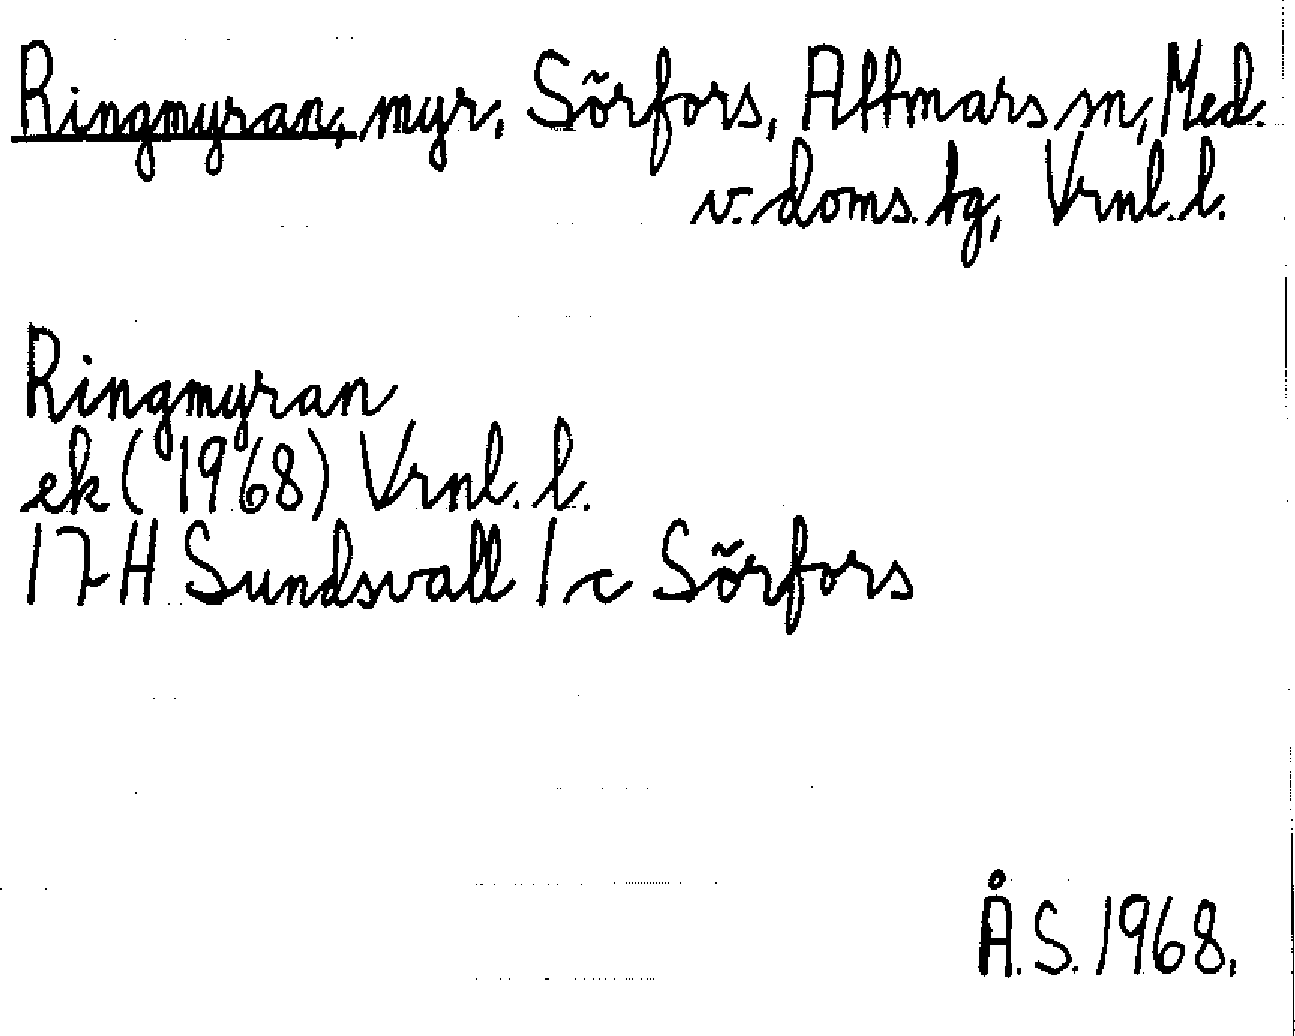 Ringmyran, myr, Sörfors, Attmars sn, Med.
v. doms.tg, Vrnl. l.
Ringmyran
ek (1968) Vrnl. l.
17 H Sundsvall 1 c Sörfors
Å.S. 1968.